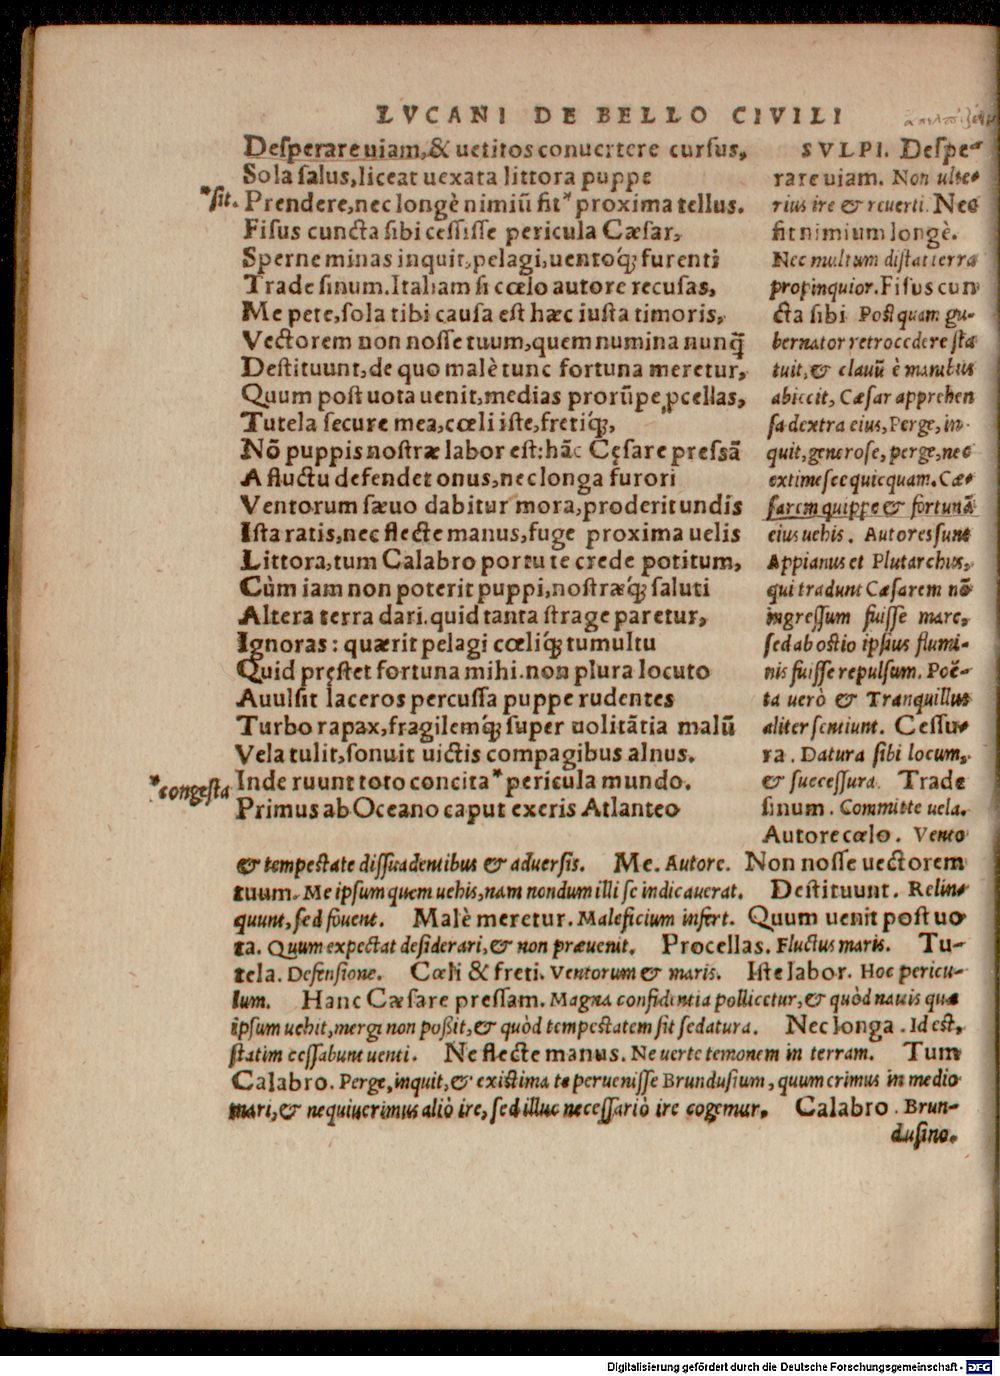 LVCANI DE BELLO CIVILI
Desperare uiam, & uetitos conuertere cursus,
Sola salus, liceat uexata littora puppe
*sit. Prendere, nec longè nimiũ fit* proxima tellus.
Fisus cuncta sibi cessisse pericula Cæsar,
Sperne minas inquit, pelagi, uentoq́; furenti
Trade sinum. Italiam si cœlo autore recusas,
Me pete, sola tibi causa est hæc iusta timoris,
Vectorem non nosse tuum, quem numina nunq̃
Destituunt, de quo malè tunc fortuna meretur,
Quum post uota uenit, medias prorũpe ꝓcellas,
Tutela secure mea, cœli iste, fretiq́;,
Nõ puppis nostræ labor est: hãc Cęsare pressã
A fluctu defendet onus, nec longa furori
Ventorum sæuo dabitur mora, proderit undis
Ista ratis, nec flecte manus, fuge proxima uelis
Littora, tum Calabro portu te crede potitum,
Cùm iam non poterit puppi, nostræq́; saluti
Altera terra dari. quid tanta strage paretur,
Ignoras: quærit pelagi cœliq́; tumultu
Quid pręstet fortuna mihi. non plura locuto
Auulsit laceros percussa puppe rudentes
Turbo rapax, fragilemq́; super uolitãtia malũ
Vela tulit, sonuit uictis compagibus alnus.
*congesta Inde ruunt toto concita* pericula mundo.
Primus ab Oceano caput exeris Atlanteo
SVLPI. Despe-
rare uiam. Non ulte-
rius ire & reuerti. Nec
fit nimium longè.
Nec multum distat terra
propinquior. Fisus cun
cta sibi Postquam gu-
bernator retrocedere sta
tuit, & clauũ è manibus
abiecit, Cæsar apprehen
sa dextra eius, Perge, in-
quit, generose, perge, nec
extimesce quicquam. Cæ-
sarem quippe & fortunã
eius uehis. Autores sunt
Appianus et Plutarchus,
qui tradunt Cæsarem nõ
ingressum fuisse mare,
sed ab ostio ipsius flumi-
nis fuisse repulsum. Poë-
ta uerò & Tranquillus
aliter sentiunt. Cessu-
ra. Datura sibi locum,
& successura. Trade
sinum. Committe uela.
Autore cœlo. Vento
& tempestate dissuadentibus & aduersis. Me. Autore. Non nosse uectorem
tuum. Me ipsum quem uehis, nam nondum illi se indicauerat. Destituunt. Relin-
quunt, sed fouent. Malè meretur. Maleficium infert. Quum uenit post uo
ta. Quum expectat desiderari, & non præuenit. Procellas. Fluctus maris. Tu-
tela. Defensione. Cœli & freti. Ventorum & maris. Iste labor. Hoc pericu-
lum. Hanc Cæsare pressam. Magna confidentia pollicetur, & quòd nauis quæ
ipsum uehit, mergi non poßit, & quòd tempestatem sit sedatura. Nec longa. Id est,
statim cessabunt uenti. Ne flecte manus. Ne uerte temonem in terram. Tum
Calabro. Perge, inquit, & existima te peruenisse Brundusium, quum erimus in medio
mari, & nequiuerimus aliò ire, sed illuc necessariò ire cogemur. Calabro. Brun-
dusino.
Digitalisierung gefördert durch die Deutsche Forschungsgemeinschaft - DFG